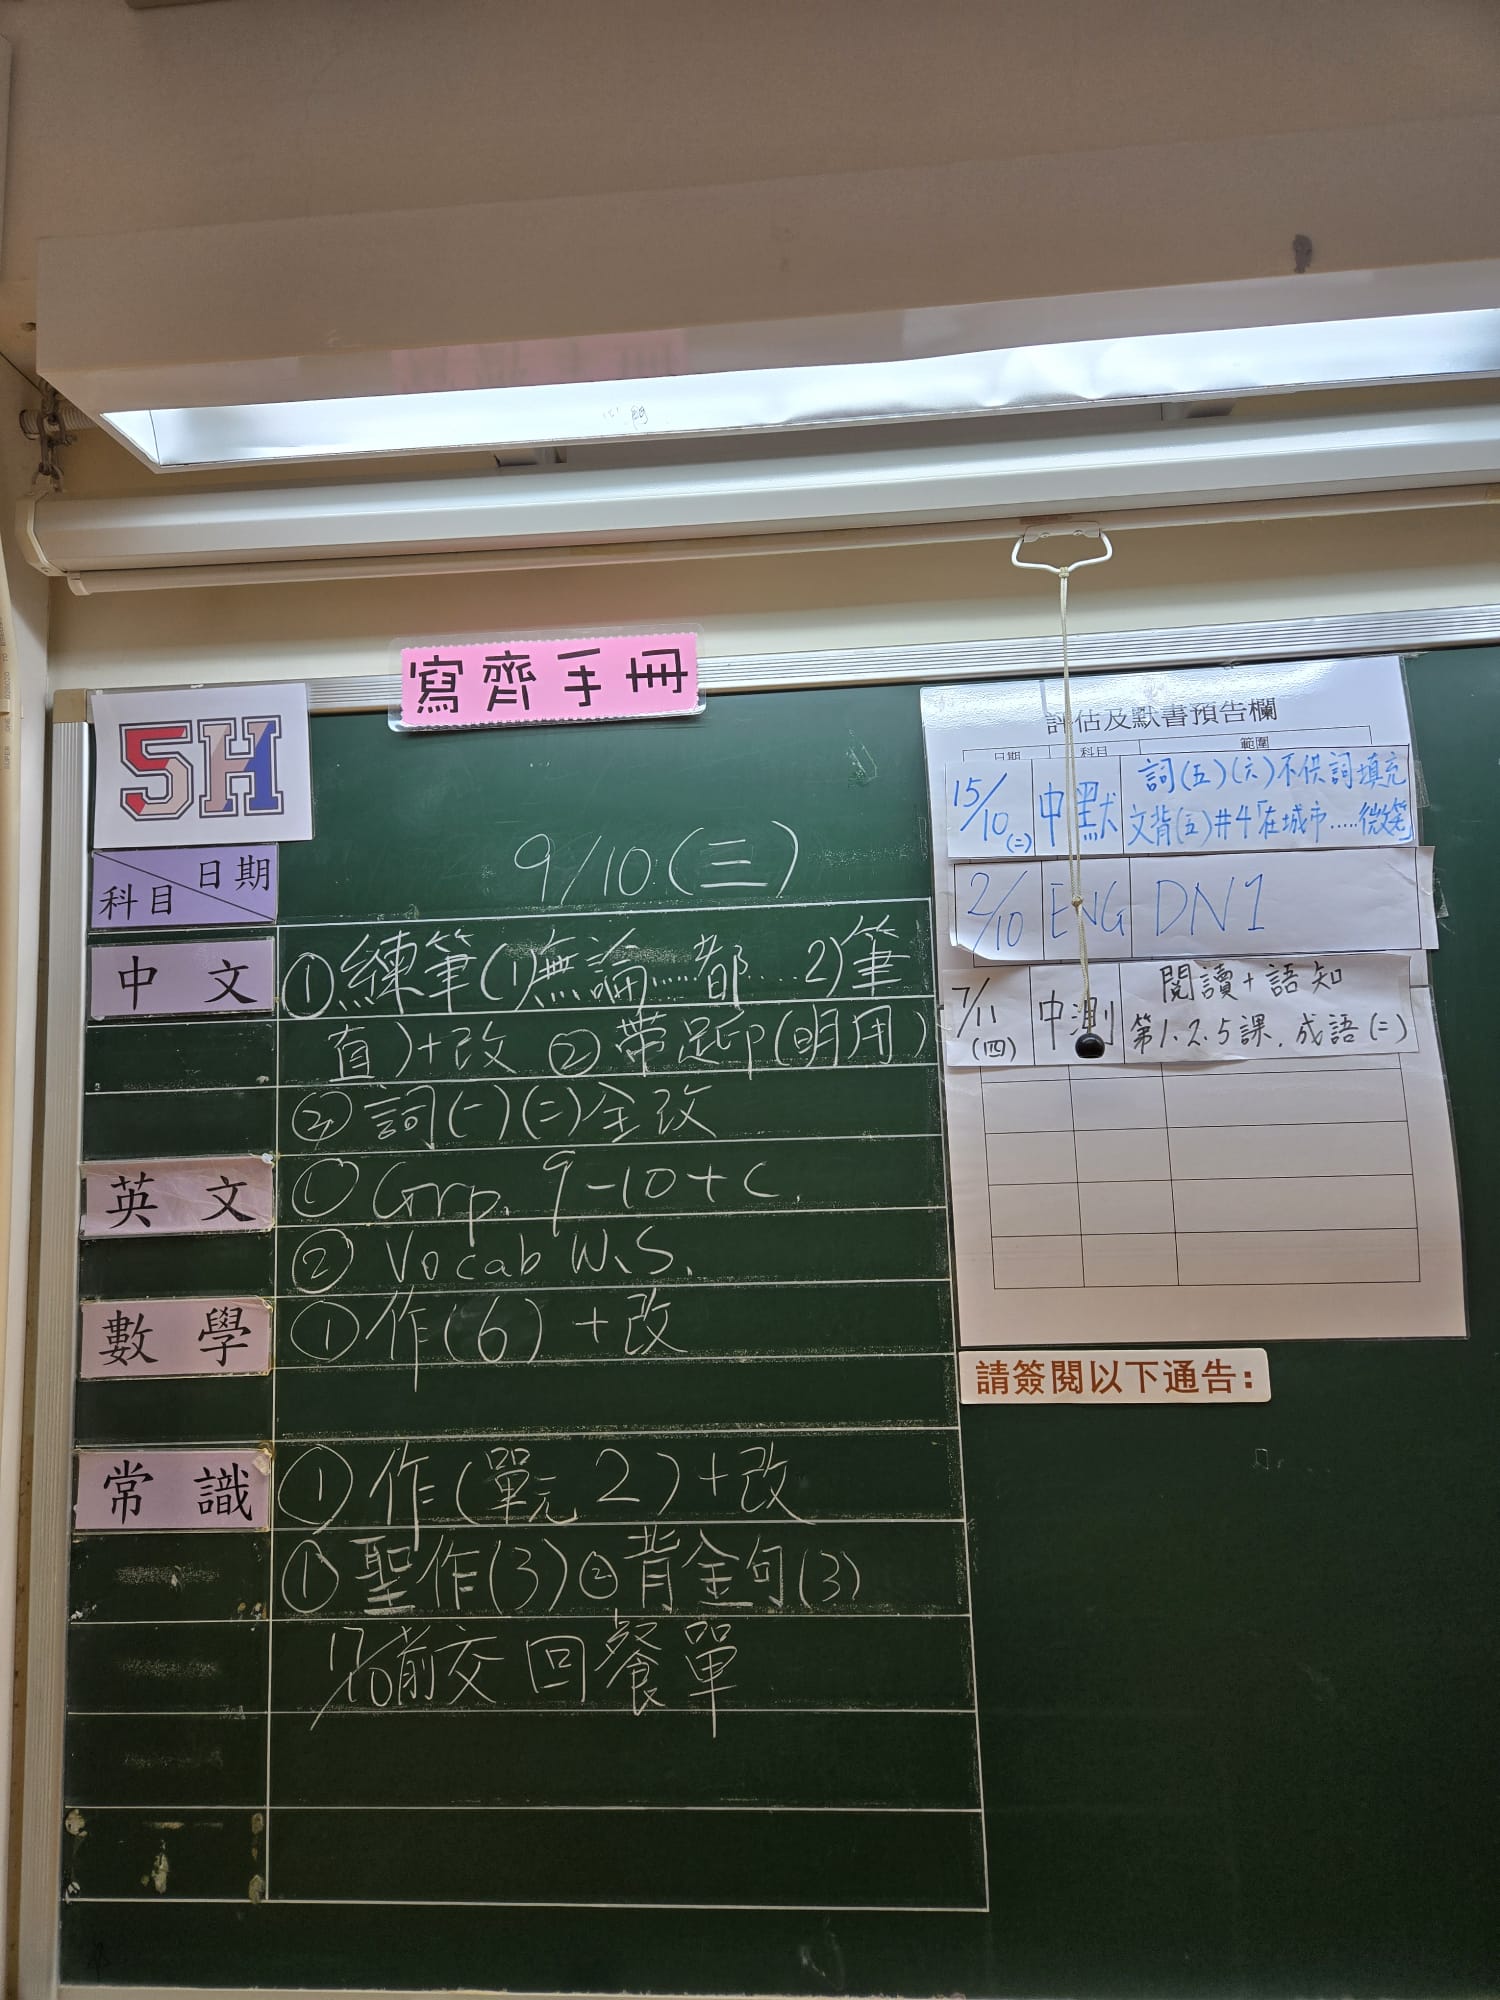 寫齊手冊
5H
日期
科目
9/10(三)
中文
①練筆(1)無論……都…. 2)筆
直)+改 ②帶足印(明用)
③詞(一)(二)全改
英文
① Grp. 9-10+c.
② Vocab W.S.
數學
①作(6)+改
常識
①作(單元2)+改
①聖作(3)②背金句(3)
17/10前交回餐單
評估及默書預告欄
日期 科目 範圍
15/10(二) 中默 詞(五)(六)不供詞填充
文背(五)#4「在城市.....微笑」
2/10 ENG DN1
7/11(四) 中測 閱讀+語知
第1.2.5課.成語(二)
請簽閱以下通告: